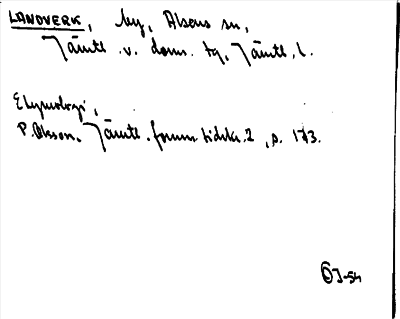 LANDVERK, by, Alsens sn,
Jämtl. v. doms. tg, Jämtl. l.
Etymologi,
P. Olsson, Jämtl. fornm. tidskr. 2, s. 173.
ÖJ-54